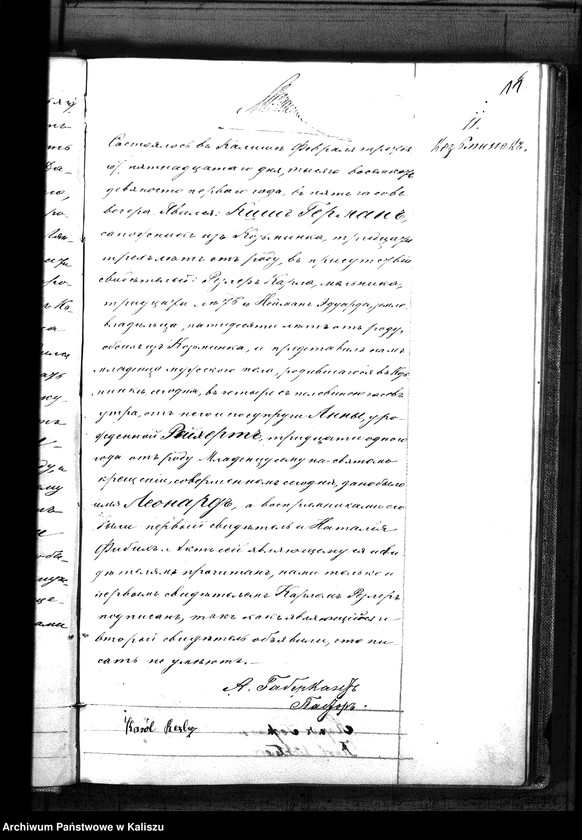 11.
Козьминекъ.
Состоялось въ Калишѣ Февраля третьяго
пятнадцатаго дня, тысяча восемьсотъ
девяносто перваго года, въ пять часовъ
вечера. Явился: Германъ,
изъ Козьминка, тридцати
трехъ лѣтъ отъ роду, въ присутствіи
свидѣтелей: Карла, мельника,
тридцати лѣтъ и Неймана Эдуарда,
владѣльца, пятидесяти лѣтъ отъ роду,
обоихъ изъ Козьминка, и представилъ намъ
младенца мужескаго пола, родившагося въ Козь-
минкѣ, сегодня, въ четыре съ половиною часовъ
утра, отъ него и его супруги Анны, уро-
жденной тридцати одного
года отъ роду. Младенцу сему на святомъ
крещеніи, совершенномъ сегодня, дано было
имя Леонардъ, а воспріемниками его
были первый свидѣтель и Наталія
Актъ сей являющемуся и сви-
дѣтелямъ прочитанъ, нами только и
первымъ свидѣтелемъ Карломъ
подписанъ, такъ какъ являющійся и
второй свидѣтель объявили, что пи-
сать не умѣютъ.
А. Габеркантъ
Пасторъ.
Karol
Archiwum Państwowe w Kaliszu